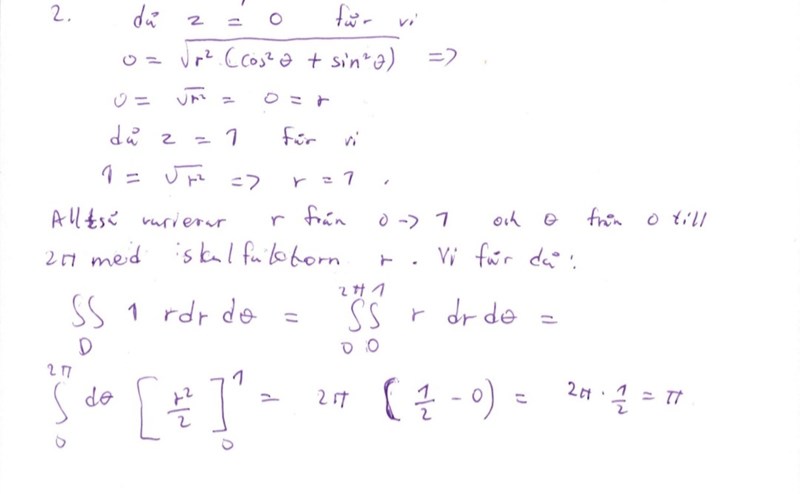 2. då z = 0 får vi
0 = √r² (cos²θ + sin²θ) =>
0 = √r² = 0 = r
då z = 1 får vi
1 = √r² => r = 1.
Alltså varierar r från 0 -> 1 och θ från 0 till
2π med skalfaktorn r. Vi får då:
∫∫_D 1 rdr dθ = ∫_0^2π ∫_0^1 r dr dθ =
∫_0^2π dθ [r²/2]_0^1 = 2π (1/2 - 0) = 2π · 1/2 = π